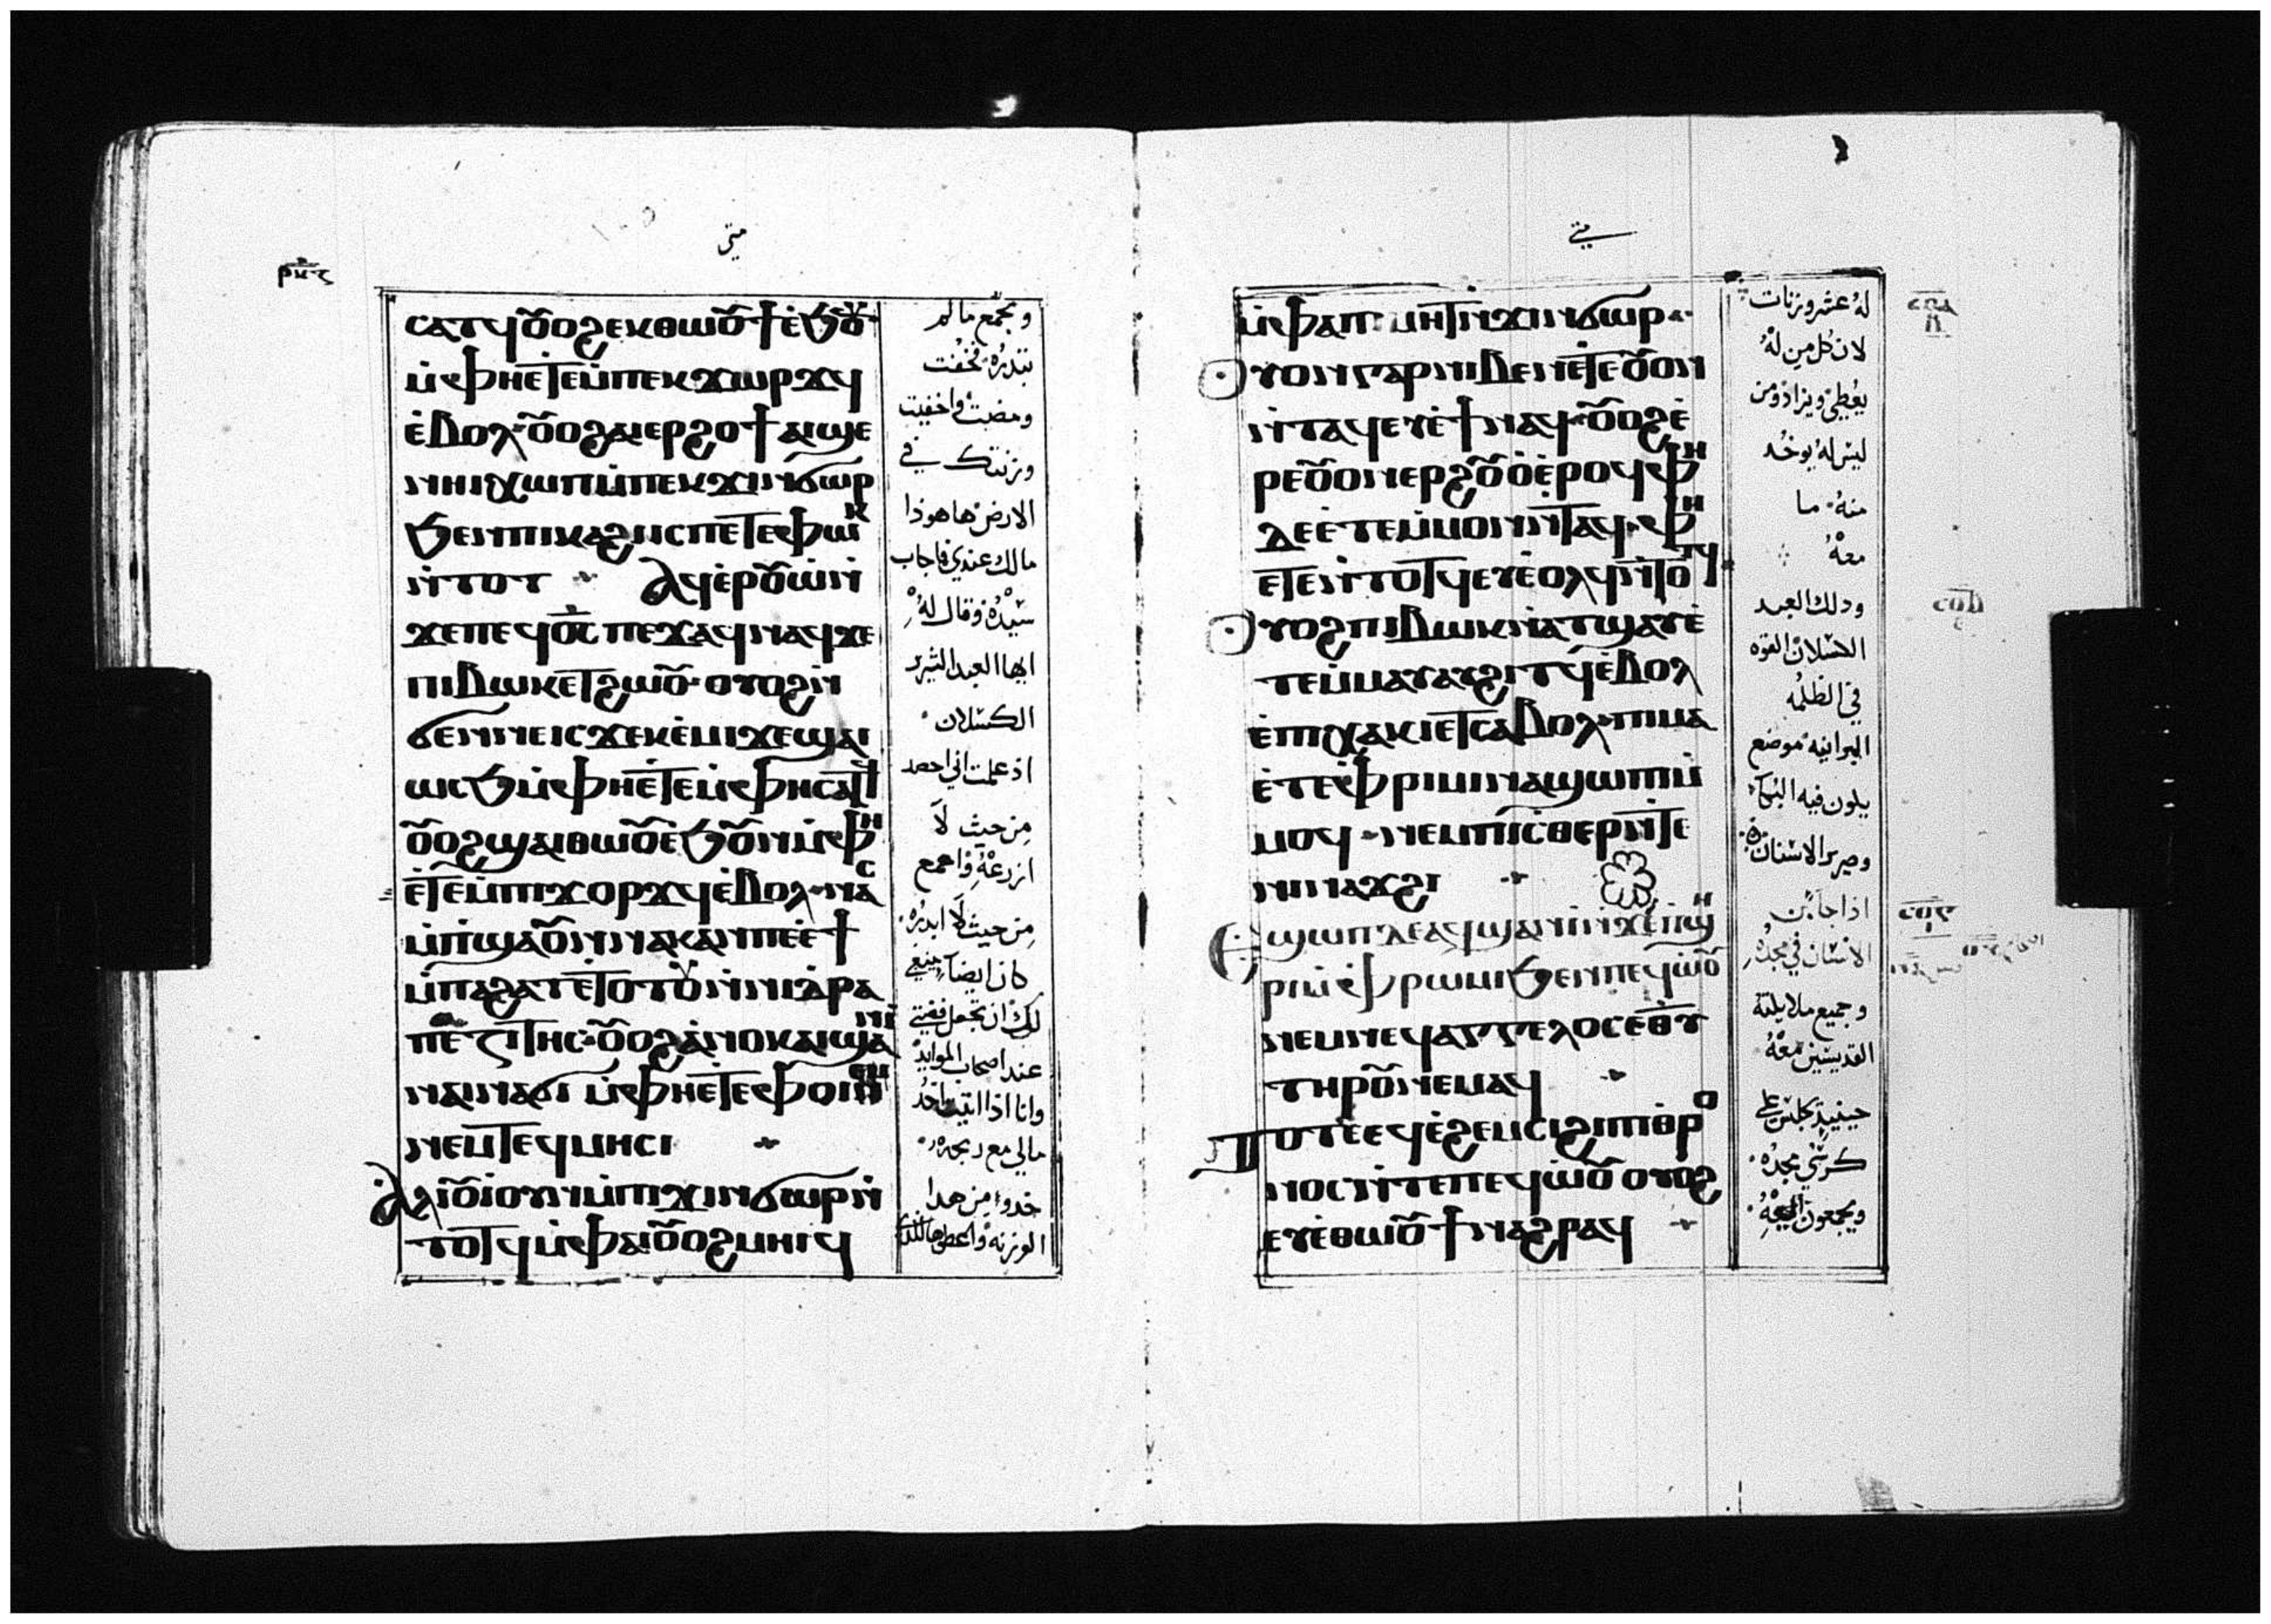 متى
ⲣⲕⲋ
ⲥⲁⲧϥ ⲟⲩⲟϩ ⲉⲕⲑⲱⲟⲩϯ ⲉϧⲟⲩ
ⲙ̀ⲫⲏⲉⲧⲉⲙ̀ⲡⲉⲕϫⲱⲣϫϥ
ⲉ̀ⲃⲟⲗ· ⲟⲩⲟϩ ⲁⲓⲉⲣϩⲟϯ ⲁⲓϣⲉ
ⲛⲏⲓ ⲭⲱⲡ ⲙ̀ⲡⲉⲕϫⲓⲛϭⲱⲣ
ϧⲉⲛⲡⲓⲕⲁϩⲓ ⲓⲥ ⲡⲉⲧⲉⲫⲱⲕ
ⲛ̀ⲧⲟⲧ ⲁϥⲉ̀ⲣⲟⲩⲱ̀ ⲛ̀
ϫⲉⲡⲉϥⲟ̅ⲥ̅ ⲡⲉϫⲁϥ ⲛⲁϥ ϫⲉ
ⲡⲓⲃⲱⲕ ⲉⲧϩⲱⲟⲩ· ⲟⲩⲟϩ ⲛ̀
ϭⲉⲛⲛⲉ ⲓⲥϫⲉ ⲕⲉ̀ⲙⲓ ϫⲉ ϣⲁⲓ
ⲱⲥϧ ⲙ̀ⲫⲏⲉ̀ⲧⲉⲙ̀ⲫⲏⲥⲁⲧϥ
ⲟⲩⲟϩ ϣⲁⲓⲑⲱⲟⲩϯ ⲉ̀ϧⲟⲩⲛ ⲙ̀ⲫⲏ
ⲉ̀ⲧⲉⲙ̀ⲡⲓϫⲟⲣϫϥ ⲉ̀ⲃⲟⲗ· ⲛⲁⲥ
ⲙ̀ⲡϣⲁ ⲟⲩⲛ ⲛⲁⲕ ⲁⲛ ⲡⲉ ⲉ̀ϯ
ⲙ̀ⲡⲁϩⲁⲧ ⲉ̀ⲧⲟⲧⲟⲩ ⲛ̀ⲛⲓⲧⲣⲁ
ⲡⲉⲍⲓⲧⲏⲥ· ⲟⲩⲟϩ ⲁ̀ⲛⲟⲕ ⲁⲓϣⲁⲛⲓ̀
ⲛⲁⲓⲛⲁϭⲓ ⲙ̀ⲫⲏⲉ̀ⲧⲉⲫⲱⲓ ⲡⲉ
ⲛⲉⲙ ⲧⲉϥⲙⲏⲥⲓ
ⲁⲗⲓⲟⲩⲓ ⲟⲩⲛ ⲙ̀ⲡⲓϫⲓⲛϭⲱⲣ ⲛ̀
ⲧⲟⲧϥ ⲙ̀ⲫⲁⲓ ⲟⲩⲟϩ ⲙⲏⲓϥ
وتجمع ما لم
تبدره· فخفت
ومضيت واخفيت
وزنتك في
الارض· ها هوذا
مالك عندي فاجاب
سيده وقال له
ايها العبد الشرير
الكسلان·
اذ علمت اني احصد
من حيث لا
ازرعه واجمع
من حيث لا ابدره·
كان ايضا ينبغي
لك ان تجعل فضتي
عند اصحاب الموايد
وانا اذا اتيت اخد
مالي مع ربحه·
خدوا من هدا
الوزنه واعطوها للذي
متى
ⲙ̀ⲫⲁⲡⲓⲙⲏⲧ ⲛ̀ϫⲓⲛϭⲱⲣ·
ⲟⲩⲟⲛ ⲅⲁⲣ ⲛⲓⲃⲉⲛ ⲉ̀ⲧⲉ ⲟⲩⲟⲛ
ⲛ̀ⲧⲁϥ ⲉⲩⲉ̀ϯ ⲛⲁϥ· ⲟⲩⲟϩ ⲉ̀
ⲣⲉ ⲟⲩⲟⲛ ⲉⲣϩⲟⲩⲟ̀ ⲉ̀ⲣⲟϥ ⲫⲏ
ⲇⲉ ⲉ̀ⲧⲉⲙ̀ⲙⲟⲛ ⲛ̀ⲧⲁϥ· ⲫⲏ
ⲉⲧⲉⲛ̀ⲧⲟⲧϥ ⲉⲩⲉ̀ⲟⲗϥ ⲛ̀ⲧⲟⲧϥ
ⲟⲩⲟϩ ⲡⲓⲃⲱⲕ ⲛ̀ⲁⲧϣⲁⲩ ⲉ̀
ⲧⲉⲙ̀ⲙⲁⲩ ⲁⲩϩⲓⲧϥ ⲉ̀ⲃⲟⲗ
ⲉ̀ⲡⲓⲭⲁⲕⲓ ⲉⲧⲥⲁⲃⲟⲗ· ⲡⲓⲙⲁ
ⲉ̀ⲧⲉ ⲫⲣⲓⲙⲓ ⲛⲁϣⲱⲡⲓ ⲙ̀
ⲙⲟϥ· ⲛⲉⲙ ⲡⲓⲥⲑⲉⲣⲧⲉⲣ ⲛ̀ⲧⲉ
ⲛⲓⲛⲁϫϩⲓ
ⲉϣⲱⲡ ⲇⲉ ⲁϥϣⲁⲛⲓ̀ ⲛ̀ϫⲉ ⲡ̀ϣⲏ
ⲣⲓ ⲙ̀ⲫⲣⲱⲙⲓ ϧⲉⲛ ⲡⲉϥⲱ̀ⲟⲩ
ⲛⲉⲙ ⲛⲉϥⲁⲅⲅⲉⲗⲟⲥ ⲉ̅ⲑ̅ⲩ̅
ⲧⲏⲣⲟⲩ ⲛⲉⲙⲁϥ
ⲧⲟⲧⲉ ⲉϥⲉ̀ϩⲉⲙⲥⲓ ϩⲓ ⲡⲓⲑⲣⲟ
ⲛⲟⲥ ⲛ̀ⲧⲉ ⲡⲉϥⲱ̀ⲟⲩ ⲟⲩⲟϩ
ⲉⲩⲉ̀ⲑⲱⲟⲩϯ ⲛⲁϩⲣⲁϥ
له عشر وزنات
لان كل من له
يعطى ويزاد ومن
ليس له يوخد
منه· ما
معه
ودلك العبد
الكسلان القوه
في الظلمه
البرانيه موضع
يكون فيه البكا·
وصرير الاسنان
اذا جا ابن
الانسان في مجده
وجميع ملايكته
القديسين معه
حينيذ يجلس على
كرسي مجده·
ويجمعون اليه
ⲥⲟⲁ
ⲥⲟⲃ
ⲥⲟⲅ